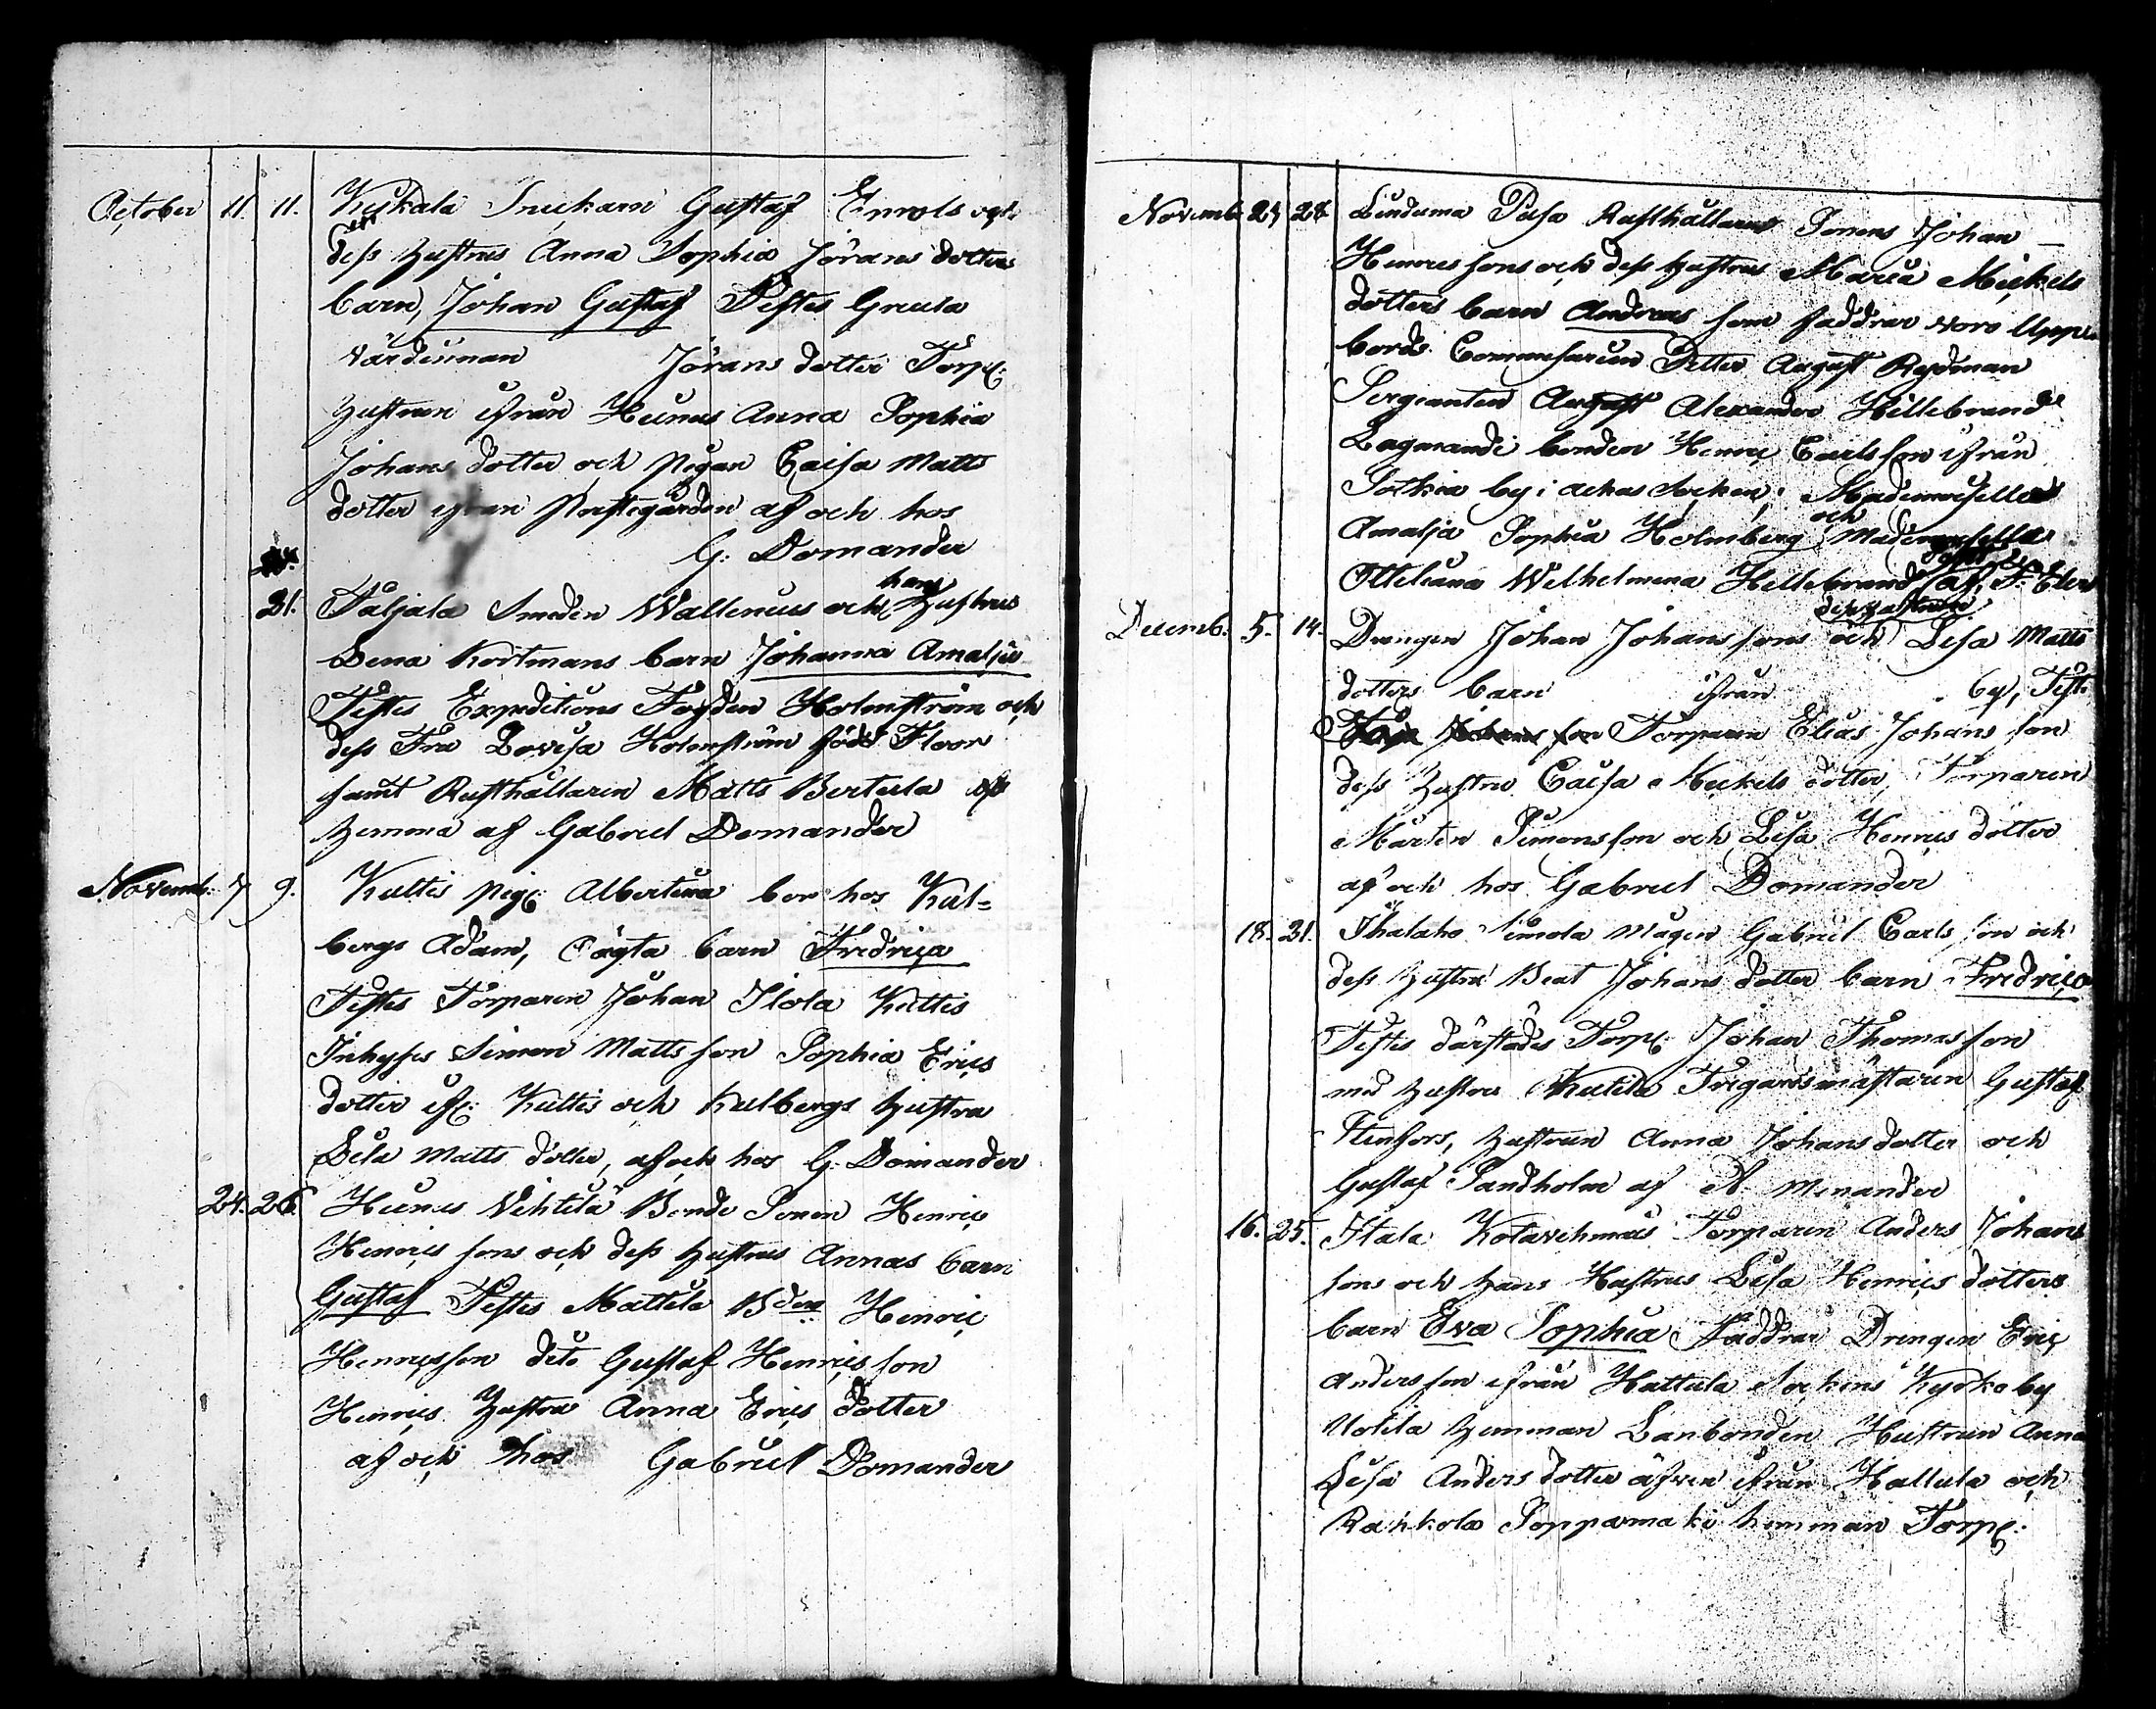 October 11. 11. Kukala Snickarn Gustaf Enrols och
dess Hustrus Anna Sophia Jörans dotters
barn, Johan Gustaf Testes Greta
Värdinnan Jörans dotter Torp:
Hustrun ifrån Hunus Anna Sophia
Johans dotter och pigan Caisa Matts
dotter ifrån Prestegården af och hos
G: Domander
21. Päljala Smeden Wallenius och hans Hustrus
Lena Kortmans barn Johanna Amalja
Testes Expeditions Fogden Holmström och
dess Fru Lovisa Holmström född Floor
samt Rusthållaren Matts Bertula
hemma af Gabriel Domander
Novemb: 7 9. Kultis pig: Albertina bor hos Kul=
bergs Adam, Oägta barn Fredrica
Testes Torparen Johan Ilola Kultis
Inhyses Simon Matts son Sophia Erics
dotter if: Kultis och Kulbergs hustru
Lisa Matts dotter, af och hos G: Domander
24. 26. Hunus Vihtilä Bonde Sonen Henric
Henrics sons och dess hustrus Annas barn
Gustaf Testes Mattila Bden: Henric
Henricsson dito Gustaf Henrics son
Henrics Hustru Anna Erics dotter
af och hos Gabriel Domander
Novemb. 27 28 Linduma Pusa Rusthållarens Sonens Johan
Henrics sons och dess hustrus Maria Mickels
dotters barn Andreas som faddrar voro Upp-
bords Commissarien Petter August Rydman
Sergeanten August Alexander Hillebrand
Lagmandi bonden Henric Carls son ifrån
Sotkia by i Ackas Socken; Mademoiselle
Amalja Sophia Holmberg och Mademoiselle
Otteliana Wilhelmina Hillebrand
Decemb. 5. 14. Drengen Johan Johans sons och dess hustrus Lisa Matts
dotters barn ifrån by, Test:
Torparen Elias Johans son
dess Hustru Caisa Mickels dotter, Torparen
Mårten Simons son och Lisa Henrics dotter
af och hos Gabriel Domander
18. 21. Ihalaho Simola Mågen Gabriel Carls son och
dess Hustru Beat Johans dotter barn Fredrica
Testes därstädes Torp: Johan Thomas son
med hustru Kutila Tregårdsmästaren Gustaf
Stenfors, hustrun Anna Johans dotter och
Gustaf Sandholm af A. Menander
16. 25. Itala Kotavehmas Torparen Anders Johans
sons och hans Hustrus Lisa Henrics dotters
barn Eva Sophia Faddrar Drengen Eric
Anders son ifrån Hattula Sockens Kyrkoby
Uotila hemman Lanbonden Hustrun Anna
Lisa Anders dotter äfven ifrån Hattula och
Rahkola Soppamaki hemman Torp: